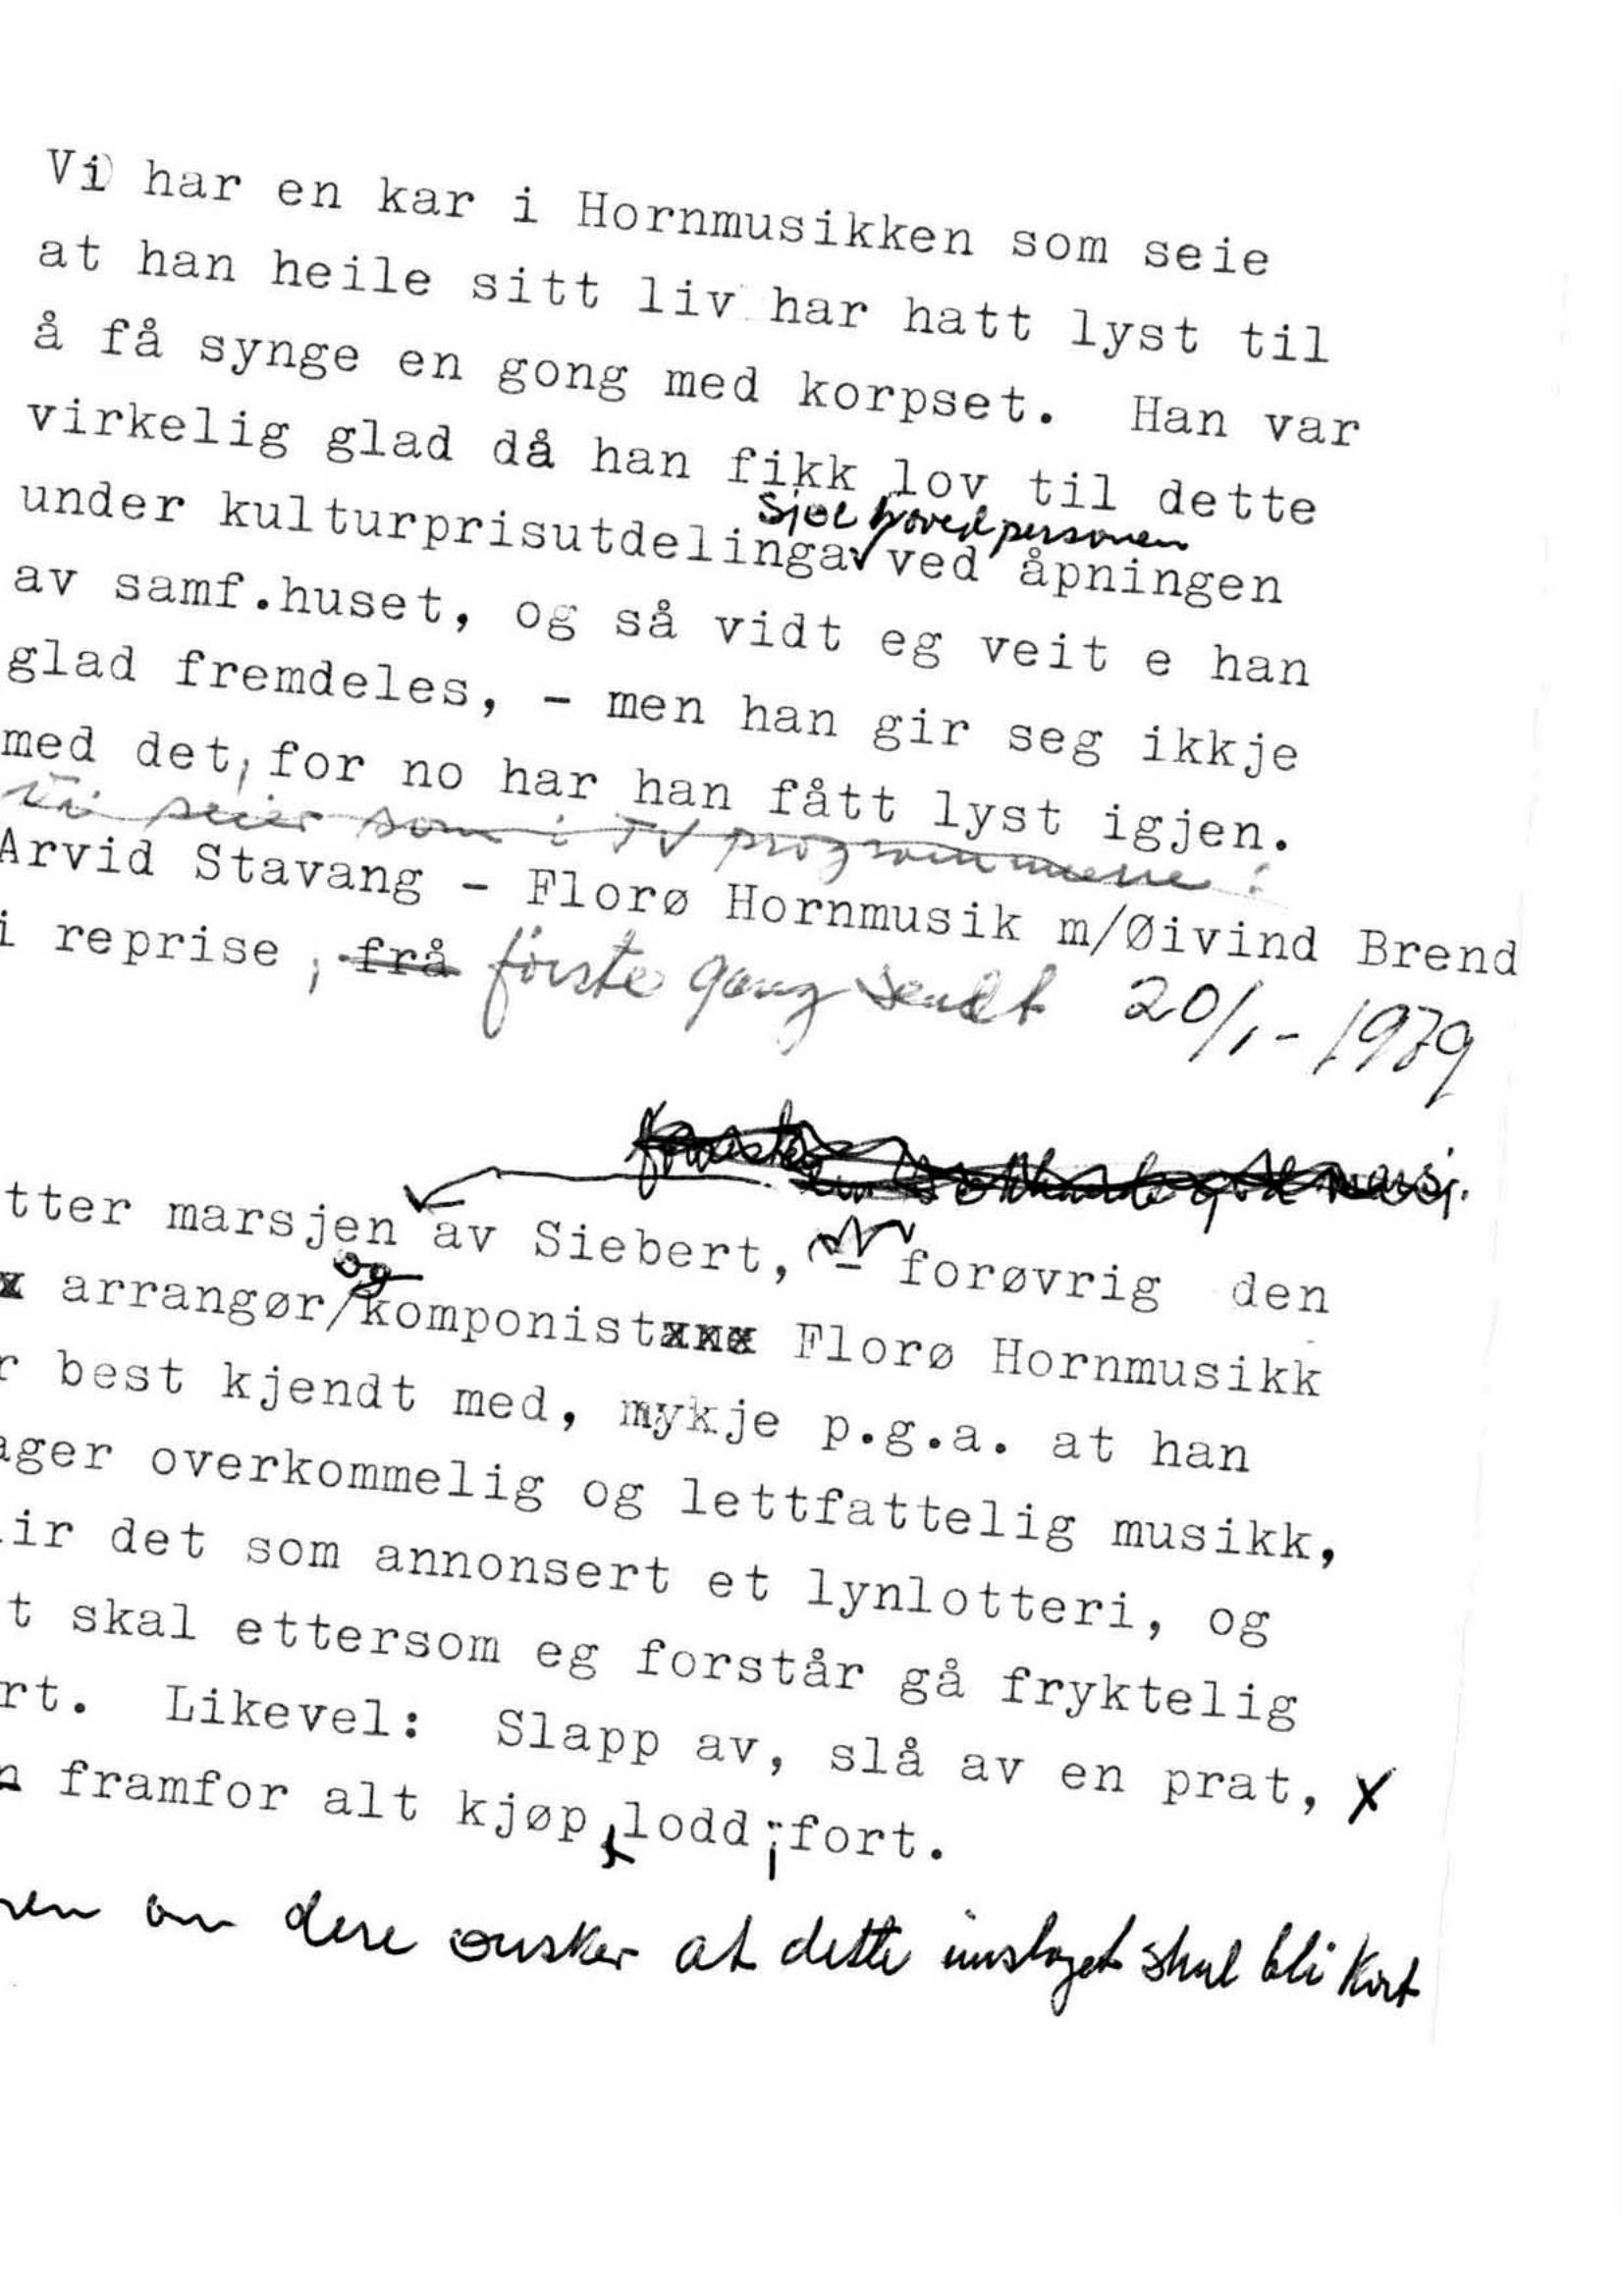 Vi har en kar i Hornmusikken som seie
at han heile sitt liv har hatt lyst til
å få synge en gong med korpset. Han var
virkelig glad då han fikk lov til dette
Sjøl hovedpersonen
under kulturprisutdelinga ved åpningen
av samf.huset, og så vidt eg veit e han
glad fremdeles, - men han gir seg ikkje
med det, for no har han fått lyst igjen.
Vi seier som i TV programmene :
Arvid Stavang - Florø Hornmusik m/Øivind Brend
i reprise, frå første gang sendt 20/1-1979
tter marsjen av Siebert, - forøvrig den
og
x arrangør/komponistxxx Florø Hornmusikk
r best kjendt med, mykje p.g.a. at han
ager overkommelig og lettfattelig musikk,
ir det som annonsert et lynlotteri, og
t skal ettersom eg forstår gå fryktelig
rt. Likevel: Slapp av, slå av en prat, X
n framfor alt kjøp lodd; fort.
om dere ønsker at dette innslaget skal bli kort